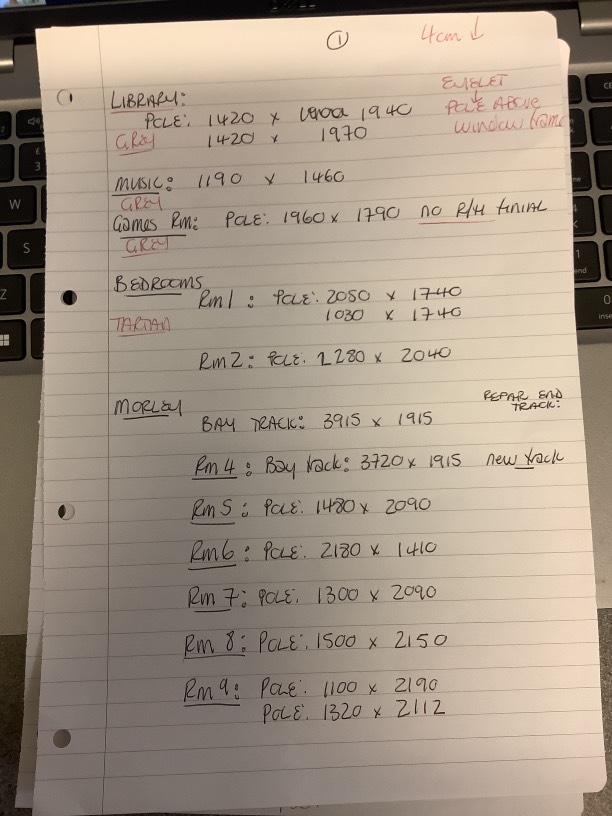 1
4cm ↓
EYELET
LIBRARY:
POLE: 1420 x 1940
POLE ABOVE
GREY 1420 x 1970
window frame
MUSIC: 1190 x 1460
GREY
Games Rm: POLE: 1960 x 1790 no R/H finial
GREY
BEDROOMS
Rm1: POLE: 2050 x 1740
TARTAN 1030 x 1740
Rm2: POLE: 1280 x 2040
MORLEY
REPAIR END
TRACK:
BAY TRACK: 3915 x 1915
Rm4: Bay track: 3720 x 1915 new track
Rm5: POLE: 1480 x 2090
Rm6: POLE: 2180 x 1410
Rm7: POLE: 1300 x 2090
Rm 8: POLE: 1500 x 2150
Rm9: POLE: 1100 x 2190
POLE: 1320 x 2112